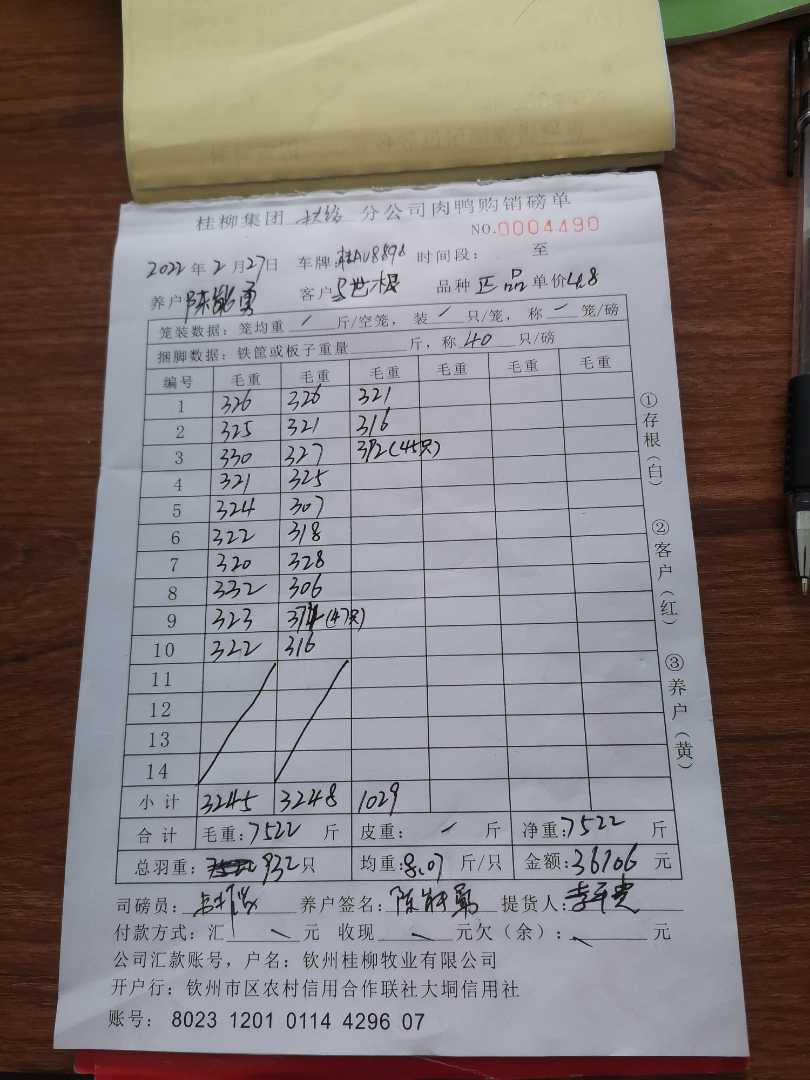 桂柳集团 分公司肉鸭购销磅单
NO.0004490
2022年2月27日 车牌:桂AU8896 时间段: 至
养户陈能勇 客户 品种 正品 单价4.8
笼装数据:笼均重 / 斤/空笼,装 / 只/笼,称 / 笼/磅
捆脚数据:铁筐或板子重量 斤,称40只/磅
编号 毛重 毛重 毛重 毛重 毛重 毛重
1 326 326 321
2 325 321 316
3 330 327 392(45只)
4 321 325
5 324 307
6 322 318
7 320 328
8 332 306
9 323 374(47只)
10 322 316
11
12
13
14
小计 3245 3248 1029
合计 毛重:7522 斤 皮重: / 斤 净重:7522 斤
总羽重: 932只 均重:8.07 斤/只 金额:36106 元
司磅员: 养户签名:陈能勇 提货人:
付款方式:汇 \ 元 收现 \ 元欠(余): \ 元
公司汇款账号,户名:钦州桂柳牧业有限公司
开户行:钦州市区农村信用合作联社大垌信用社
账号: 8023 1201 0114 4296 07
①存根(白)
②客户(红)
③养户(黄)